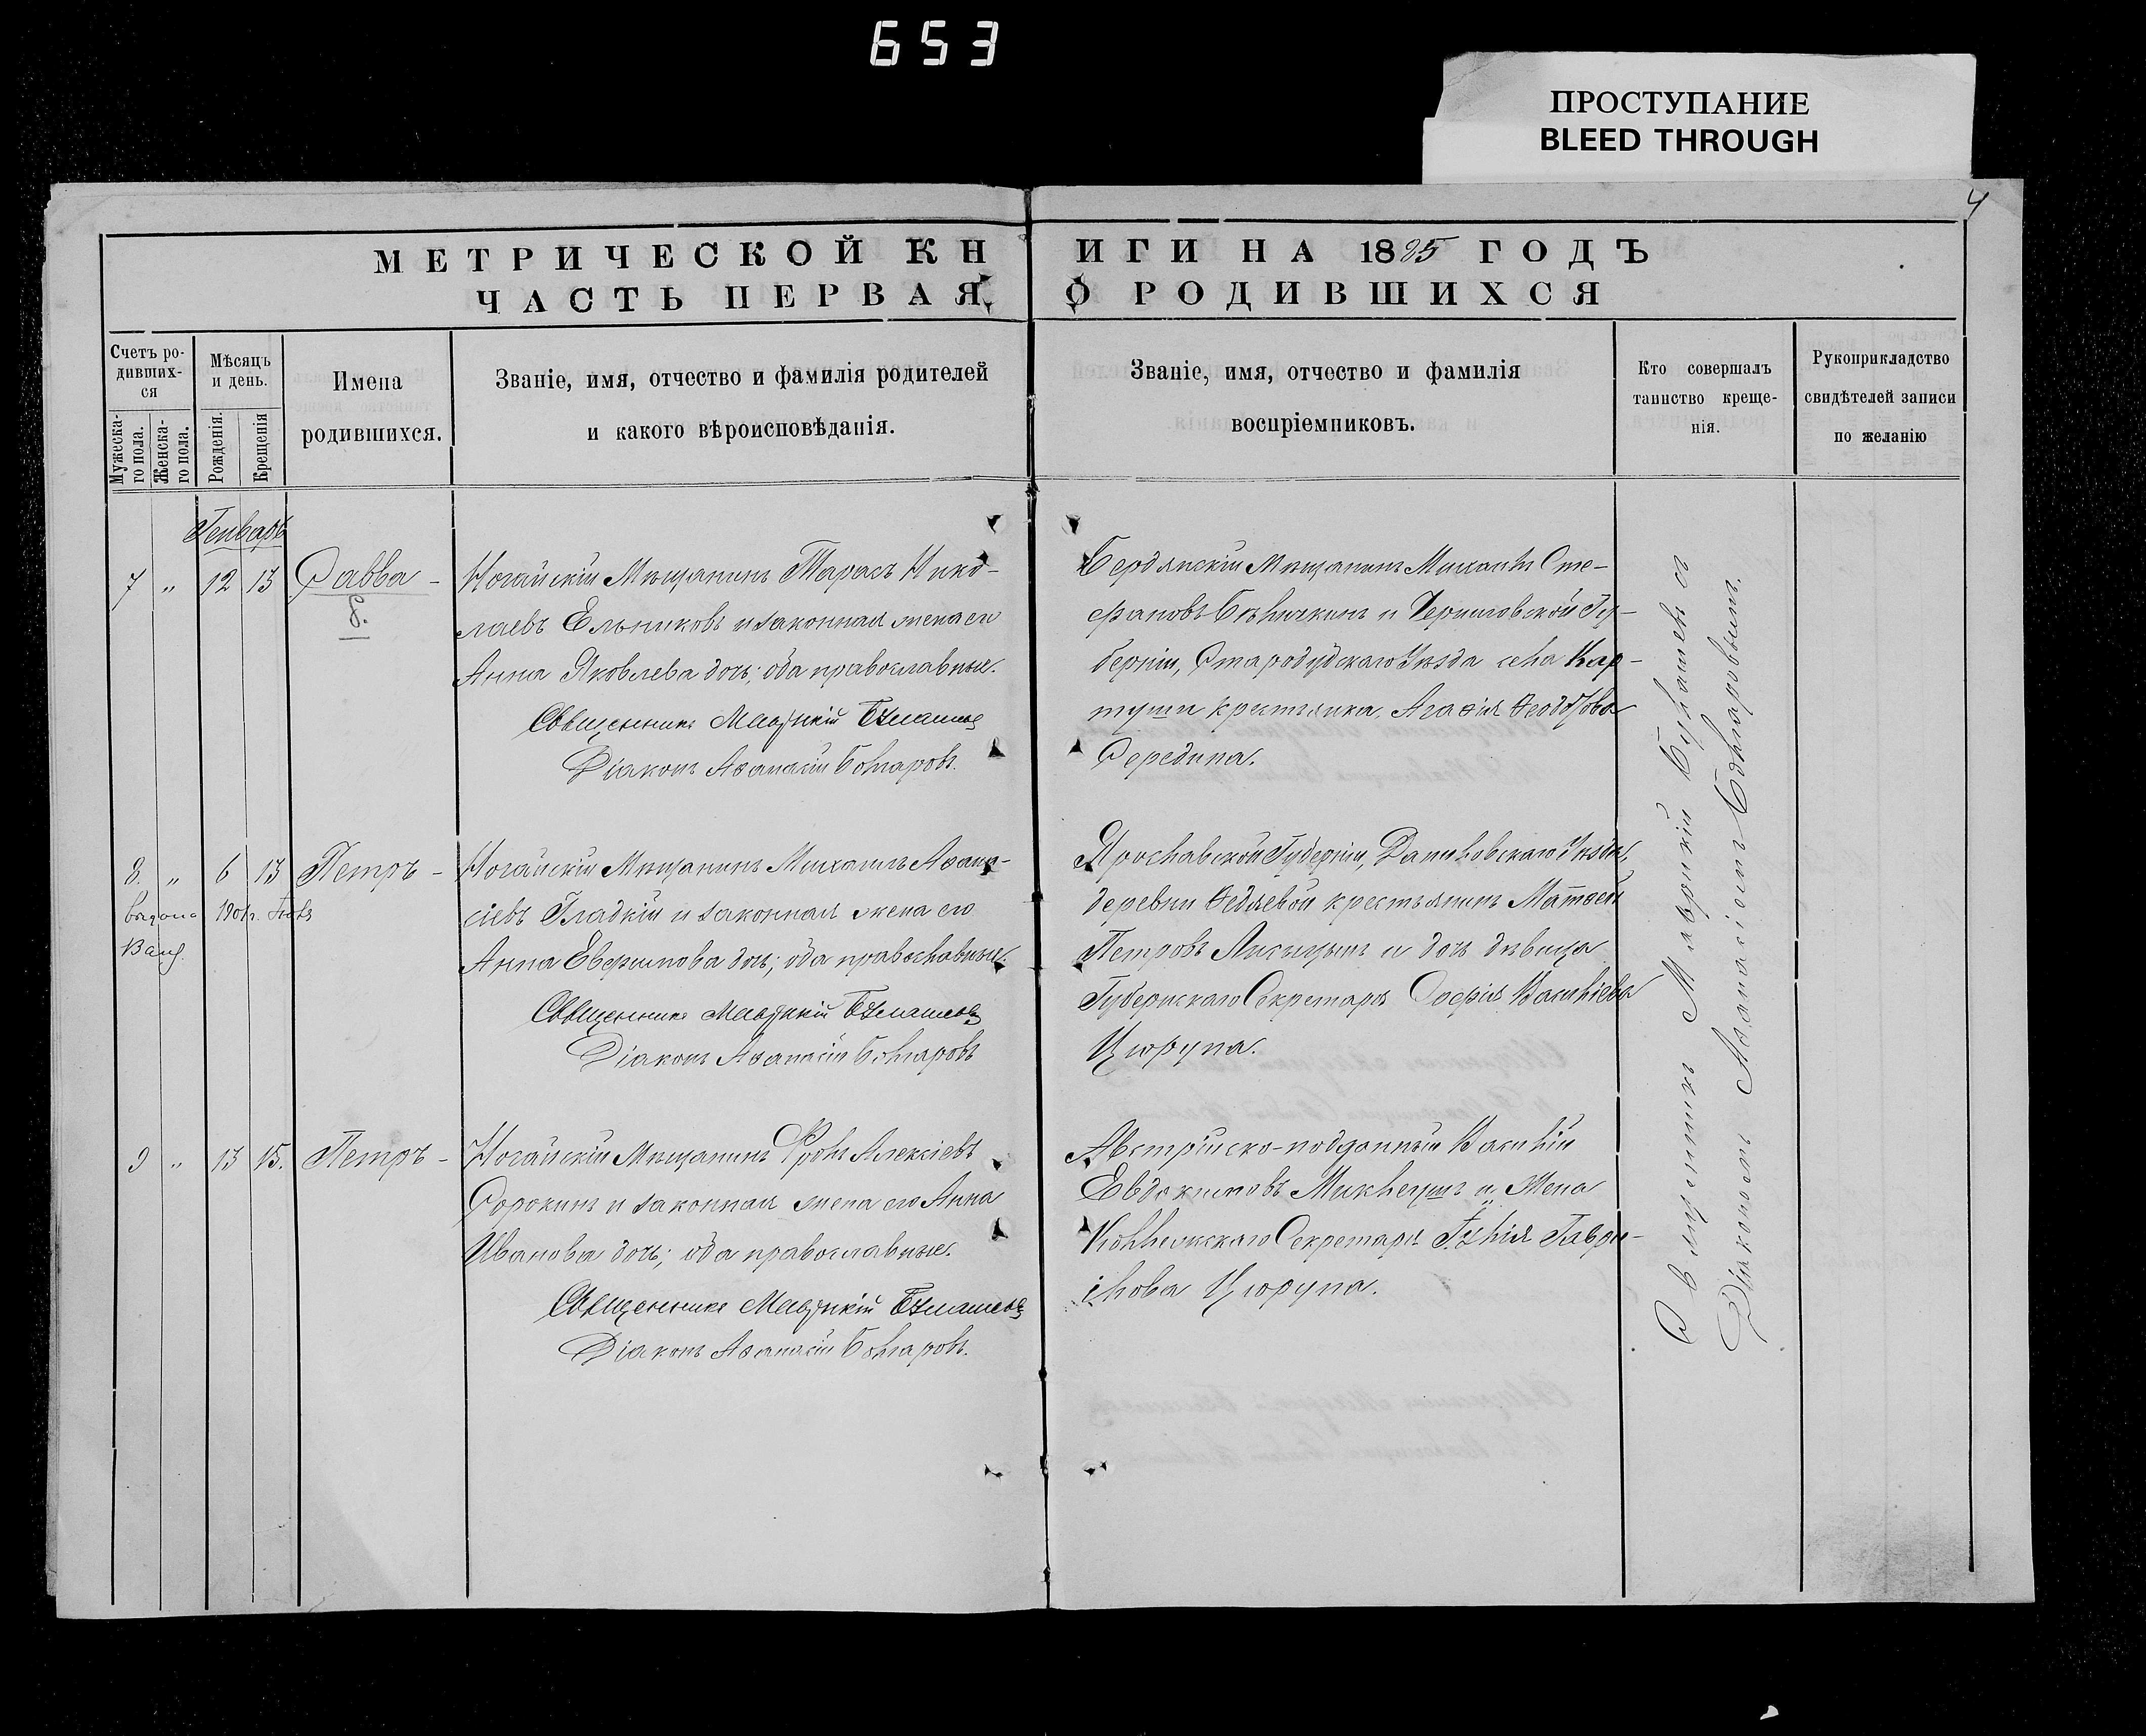 653
ПРОСТУПАНИЕ
BLEED THROUGH
4
МЕТРИЧЕСКОЙ КНИГИ НА 1885 ГОДЪ
ЧАСТЬ ПЕРВАЯ, О РОДИВШИХСЯ
Счетъ ро-
дивших-
ся
Мужеска-
го пола.
Женска-
го пола.
Мѣсяцъ
и день.
Рожденія.
Крещенія
Имена
родившихся.
Званіе, имя, отчество и фамилія родителей
и какого вѣроисповѣданія.
Званіе, имя, отчество и фамилія
воспріемниковъ.
Кто совершалъ
таинство креще-
нія.
Рукоприкладство
свидѣтелей записи
по желанію
Генварь
7 " 12 13 Савва -
8.
Ногайскій Мѣщанинъ Тарасъ Нико-
лаевъ Ельниковъ и законная жена его
Анна Яковлева дочь; оба православные.
Священникъ Маврикій
Діаконъ Аѳанасій Болгаровъ.
Бердянскій Мѣщанинъ Михаилъ Сте-
фановъ и Черниговской Гу-
берніи, Стародубскаго Уѣзда села Кар-
туши крестьянка, Агаѳія
Середина.
8. " 6 13 Петръ -
1901г.
Ногайскій Мѣщанинъ Михаилъ Аѳана-
сіевъ Гладкій и законная жена его
Анна Евфимова дочь; оба православные.
Священникъ Маврикій
Діаконъ Аѳанасій Болгаровъ
Ярославской Губерніи, Даниловскаго Уѣзда,
деревни Ѳедяевой крестьянинъ Матѳей
Петровъ Лисицынъ и дочь дѣвица
Губернскаго Секретаря Софія Василіева
Цюрупа.
9 " 13 15. Петръ -
Ногайскій Мѣщанинъ Фролъ Алексіевъ
Сорокинъ и законная жена его Анна
Иванова дочь; оба православные.
Священникъ Маврикій
Діаконъ Аѳанасій Болгаровъ.
Австрійско-подданный Василій
Евдокимовъ и Жена
Коллежскаго Секретаря Гаври-
илова Цюрупа.
Священникъ Маврикій съ
Діакономъ Аѳанасіемъ Болгаровымъ.